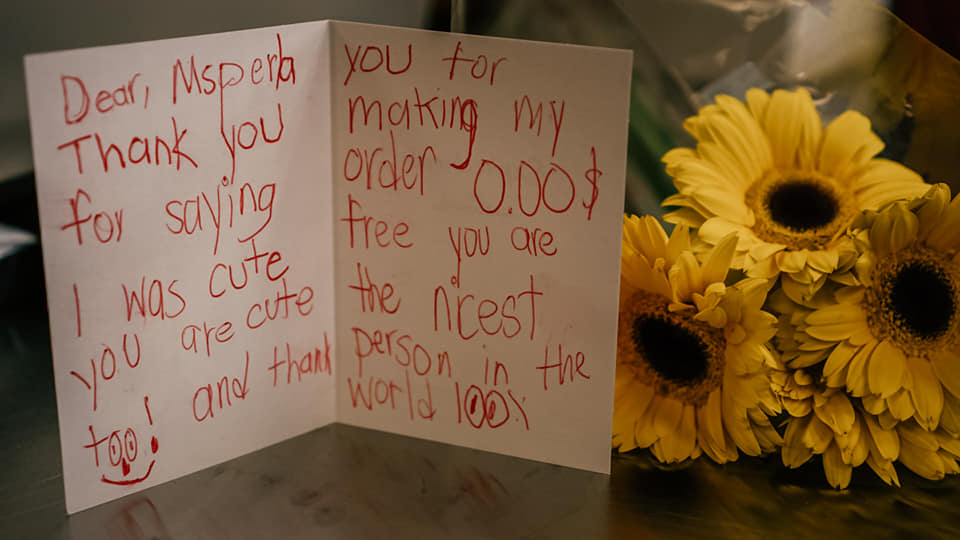 Dear, Msperla
Thank you
for saying
I was cute
you are cute
too! and thank
you for
making my
order 0.00$
free you are
the nicest
person in the
world 100%